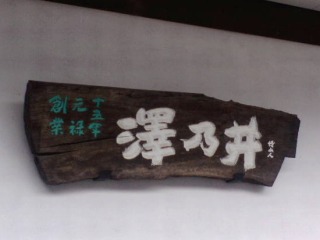 創業
元禄
十五年
澤乃井